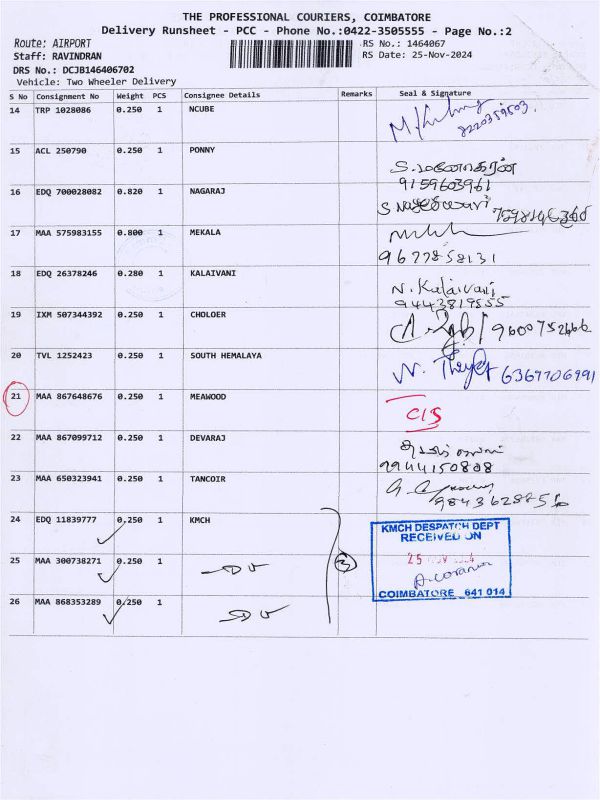 THE PROFESSIONAL COURIERS, COIMBATORE
Delivery Runsheet - PCC - Phone No.:0422-3505555 - Page No.:2
Route: AIRPORT RS No.: 1464067
Staff: RAVINDRAN RS Date: 25-Nov-2024
DRS No.: DCJB146406702
Vehicle: Two Wheeler Delivery
S No Consignment No Weight PCS Consignee Details Remarks Seal & Signature
14 TRP 1028086 0.250 1 NCUBE
8220359503
15 ACL 250790 0.250 1 PONNY
S. மனோகரன்
9159603961
16 EDQ 700028082 0.820 1 NAGARAJ
17 MAA 575983155 0.800 1 MEKALA
9677858131
18 EDQ 26378246 0.280 1 KALAIVANI
N. Kalaivani
9443819555
19 IXM 507344392 0.250 1 CHOLOER
9600752666
20 TVL 1252423 0.250 1 SOUTH HEMALAYA
6367706991
21 MAA 867648676 0.250 1 MEAWOOD
22 MAA 867099712 0.250 1 DEVARAJ
9944150808
23 MAA 650323941 0.250 1 TANCOIR
24 EDQ 11839777 0.250 1 KMCH
KMCH DESPATCH DEPT
RECEIVED ON
25 MAA 300738271 0.250 1
3
25 NOV
26 MAA 868353289 0.250 1
COIMBATORE 641 014